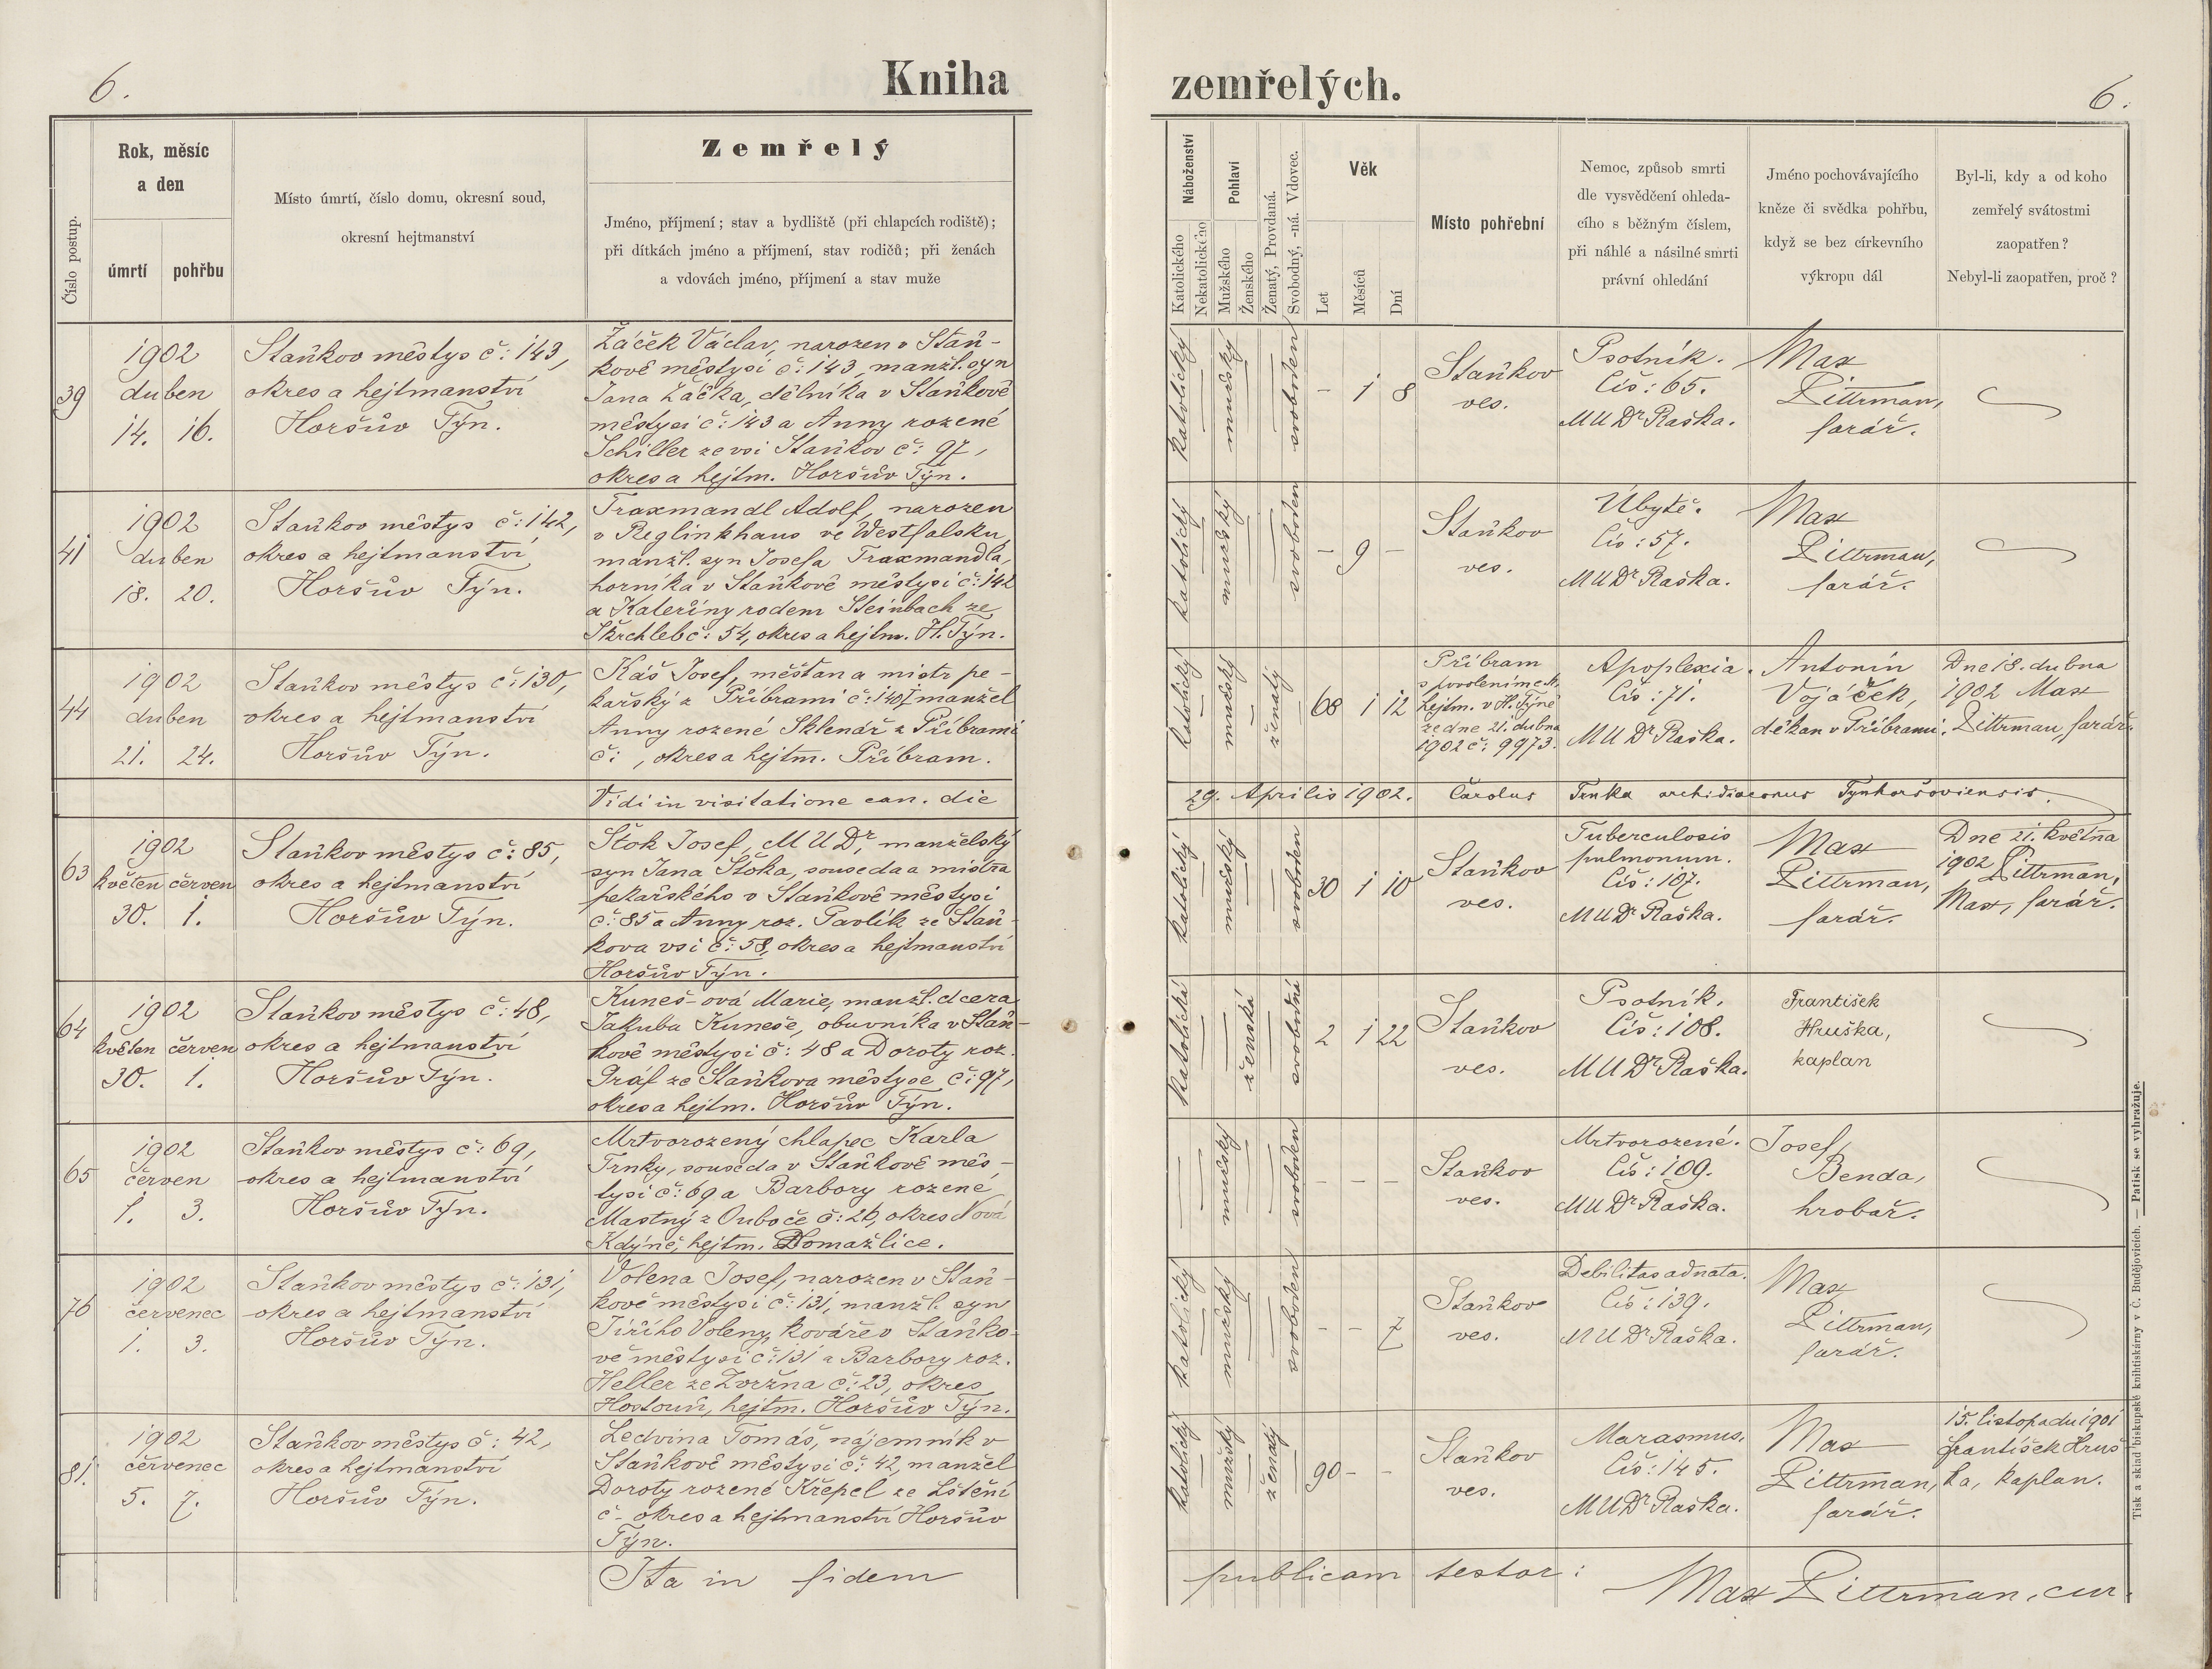 6.
Kniha
zemřelých.
6.
Číslo postup.
Rok, měsíc
a den
úmrtí
pohřbu
Místo úmrtí, číslo domu, okresní soud,
okresní hejtmanství
Zemřelý
Jméno, příjmení; stav a bydliště (při chlapcích rodiště);
při dítkách jméno a příjmení, stav rodičů; při ženách
a vdovách jméno, příjmení a stav muže
Náboženství
Katolického
Nekatolického
Pohlaví
Mužského
Ženského
Ženatý, Provdaná.
Svobodný, -ná. Vdovec.
Věk
Let
Měsíců
Dní
Místo pohřební
Nemoc, způsob smrti
dle vysvědčení ohleda-
cího s běžným číslem,
při náhlé a násilné smrti
právní ohledání
Jméno pochovávajícího
kněze či svědka pohřbu,
když se bez církevního
výkropu dál
Byl-li, kdy a od koho
zemřelý svátostmi
zaopatřen?
Nebyl-li zaopatřen, proč?
39
1902
duben
14. 16.
Staňkov městys č: 143,
okres a hejtmanství
Horšův Týn.
Žáček Václav, narozen v Staň-
kově městysi č: 143, manžl. syn
Jana Žáčka, dělníka v Staňkově
městysi č: 143 a Anny rozené
Schiller ze vsi Staňkov č: 97,
okres a hejtm. Horšův Týn.
katolický
mužský
svoboden
- 1 8
Staňkov
ves.
Psotník.
Čís: 65.
MUDr Raška.
Max
Dittrman,
farář.
41
1902
duben
18. 20.
Staňkov městys č: 142,
okres a hejtmanství
Horšův Týn.
Traxmandl Adolf, narozen
v Reglinkhaus ve Westfalsku,
manžl. syn Josefa Traxmandla,
horníka v Staňkově městysi č: 142
a Kateřiny rodem Steinbach ze
Škrchleb č: 54, okres a hejtm. H. Týn.
katolický
mužský
svoboden
- 9 -
Staňkov
ves.
Úbytě.
Čís: 57.
MUDr Raška.
Max
Dittrman,
farář.
44
1902
duben
21. 24.
Staňkov městys č: 130,
okres a hejtmanství
Horšův Týn.
Káš Josef, měšťan a mistr pe-
kařský z Příbrami č: 140 manžel
Anny rozené Sklenář z Příbrami
č: , okres a hejtm. Příbram.
katolický
mužský
ženatý
68 1 12
Příbram
s povolením c.k.
hejtm. v H. Týně
ze dne 21. dubna
1902 č: 9973.
Apoplexia.
Čís: 71.
MUDr Raška.
Antonín
Vojáček,
děkan v Příbrami.
Dne 18. dubna
1902 Max
Dittrman, farář.
Vidi in visitatione can. die
29. Aprilis 1902. Carolus Trnka archidiaconus Tynhoršoviensis.
63
1902
květen červen
30. 1.
Staňkov městys č: 85,
okres a hejtmanství
Horšův Týn.
Štok Josef, MUDr, manželský
syn Jana Štoka, souseda a mistra
pekařského v Staňkově městysi
č: 85 a Anny roz. Pavlík ze Staň-
kova vsi č: 58, okres a hejtmanství
Horšův Týn.
katolický
mužský
svoboden
30 1 10
Staňkov
ves.
Tuberculosis
pulmonum.
Čís: 107.
MUDr Raška.
Max
Dittrman,
farář.
Dne 21. května
1902 Dittrman,
Max, farář.
64
1902
květen červen
30. 1.
Staňkov městys č: 48,
okres a hejtmanství
Horšův Týn.
Kuneš-ová Marie, manžl. dcera
Jakuba Kuneše, obuvníka v Staň-
kově městysi č: 48 a Doroty roz.
Gráf ze Staňkova městyse č: 97,
okres a hejtm. Horšův Týn.
katolická
ženská
svobodná
2 1 22
Staňkov
ves.
Psotník.
Čís: 108.
MUDr Raška.
František
Hruška,
kaplan
65
1902
červen
1. 3.
Staňkov městys č: 69,
okres a hejtmanství
Horšův Týn.
Mrtvorozený chlapec Karla
Trnky, souseda v Staňkově měs-
tysi č: 69 a Barbory rozené
Mastný z Ouboče č: 26, okres Nová
Kdýně, hejtm. Domažlice.
mužský
svoboden
- - -
Staňkov
ves.
Mrtvorozené.
Čís: 109.
MUDr Raška.
Josef
Benda,
hrobař.
76
1902
červenec
1. 3.
Staňkov městys č: 131,
okres a hejtmanství
Horšův Týn.
Volena Josef, narozen v Staň-
kově městysi č: 131, manžl. syn
Jiřího Voleny, kováře v Staňko-
vě městysi č: 131 a Barbory roz.
Heller ze Zvržna č: 23, okres
Hostouň, hejtm. Horšův Týn.
katolický
mužský
svoboden
- - 7
Staňkov
ves.
Debilitas adnata.
Čís: 139.
MUDr Raška.
Max
Dittrman,
farář.
81.
1902
červenec
5. 7.
Staňkov městys č: 42,
okres a hejtmanství
Horšův Týn.
Ledvina Tomáš, nájemník v
Staňkově městysi č: 42, manžel
Doroty rozené Křepel ze Lštění
č - okres a hejtmanství Horšův
Týn.
katolický
mužský
ženatý
90 - -
Staňkov
ves.
Marasmus.
Čís: 145.
MUDr Raška.
Max
Dittrman,
farář.
15. listopadu 1901
František Hruš
ka, kaplan.
Ita in fidem
publicam testor:
Max Dittrman, cur.
Tisk a sklad biskupské knihtiskárny v Č. Budějovicích. — Patisk se vyhražuje.